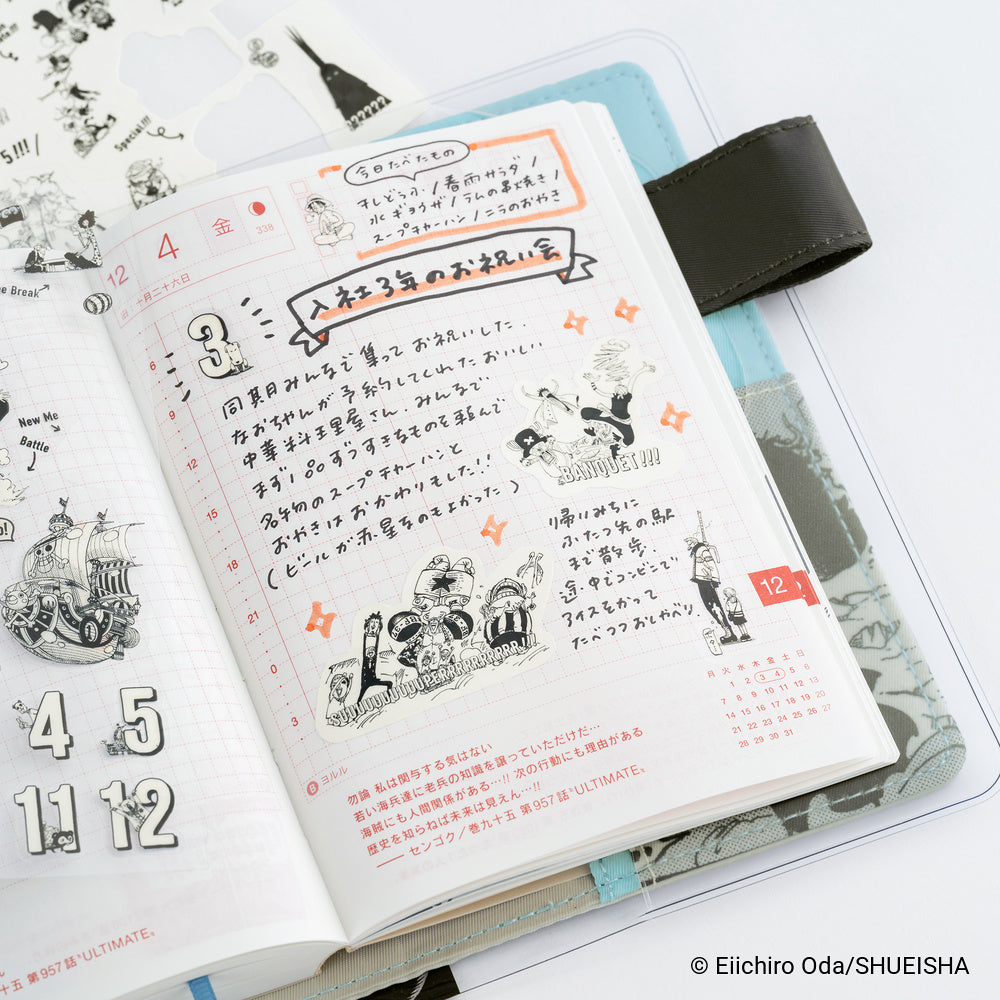 5!!!
Special!!!
??????
e Break
New Me
Battle
4
5
11
12
十五 第957話 "ULTIMATE"
12
4
金
338
旧 十月二十六日
今日たべたもの
すしどうふ / 春雨サラダ /
水ギョウザ / ラムの串焼き /
スープチャーハン / ニラのおやき
入社3年のお祝い会
3
同期みんなで集ってお祝いした.
なおちゃんが予約してくれたおいしい
中華料理屋さん. みんなで
まず1品ずつすきなものを頼んで
名物のスープチャーハンと
おやきはおかわりもした!!
(ビールが赤星なのもよかった)
BANQUET!!!
帰りみちに
ふたつ先の駅
まで散歩.
途中でコンビニで
アイスをかって
たべつつおしゃべり.
SUUUUUUUUUPERRRRRRRRR!!!
6
9
12
15
18
21
0
3
12
月 火 水 木 金 土 日
1 2 3 4 5 6
7 8 9 10 11 12 13
14 15 16 17 18 19 20
21 22 23 24 25 26 27
28 29 30 31
B ヨルル
勿論 私は関与する気はない
若い海兵達に老兵の知識を譲っていただけだ…
海賊にも人間関係がある…!! 次の行動にも理由がある
歴史を知らねば未来は見えん…!!
―― センゴク / 巻九十五 第957話 "ULTIMATE"
© Eiichiro Oda/SHUEISHA